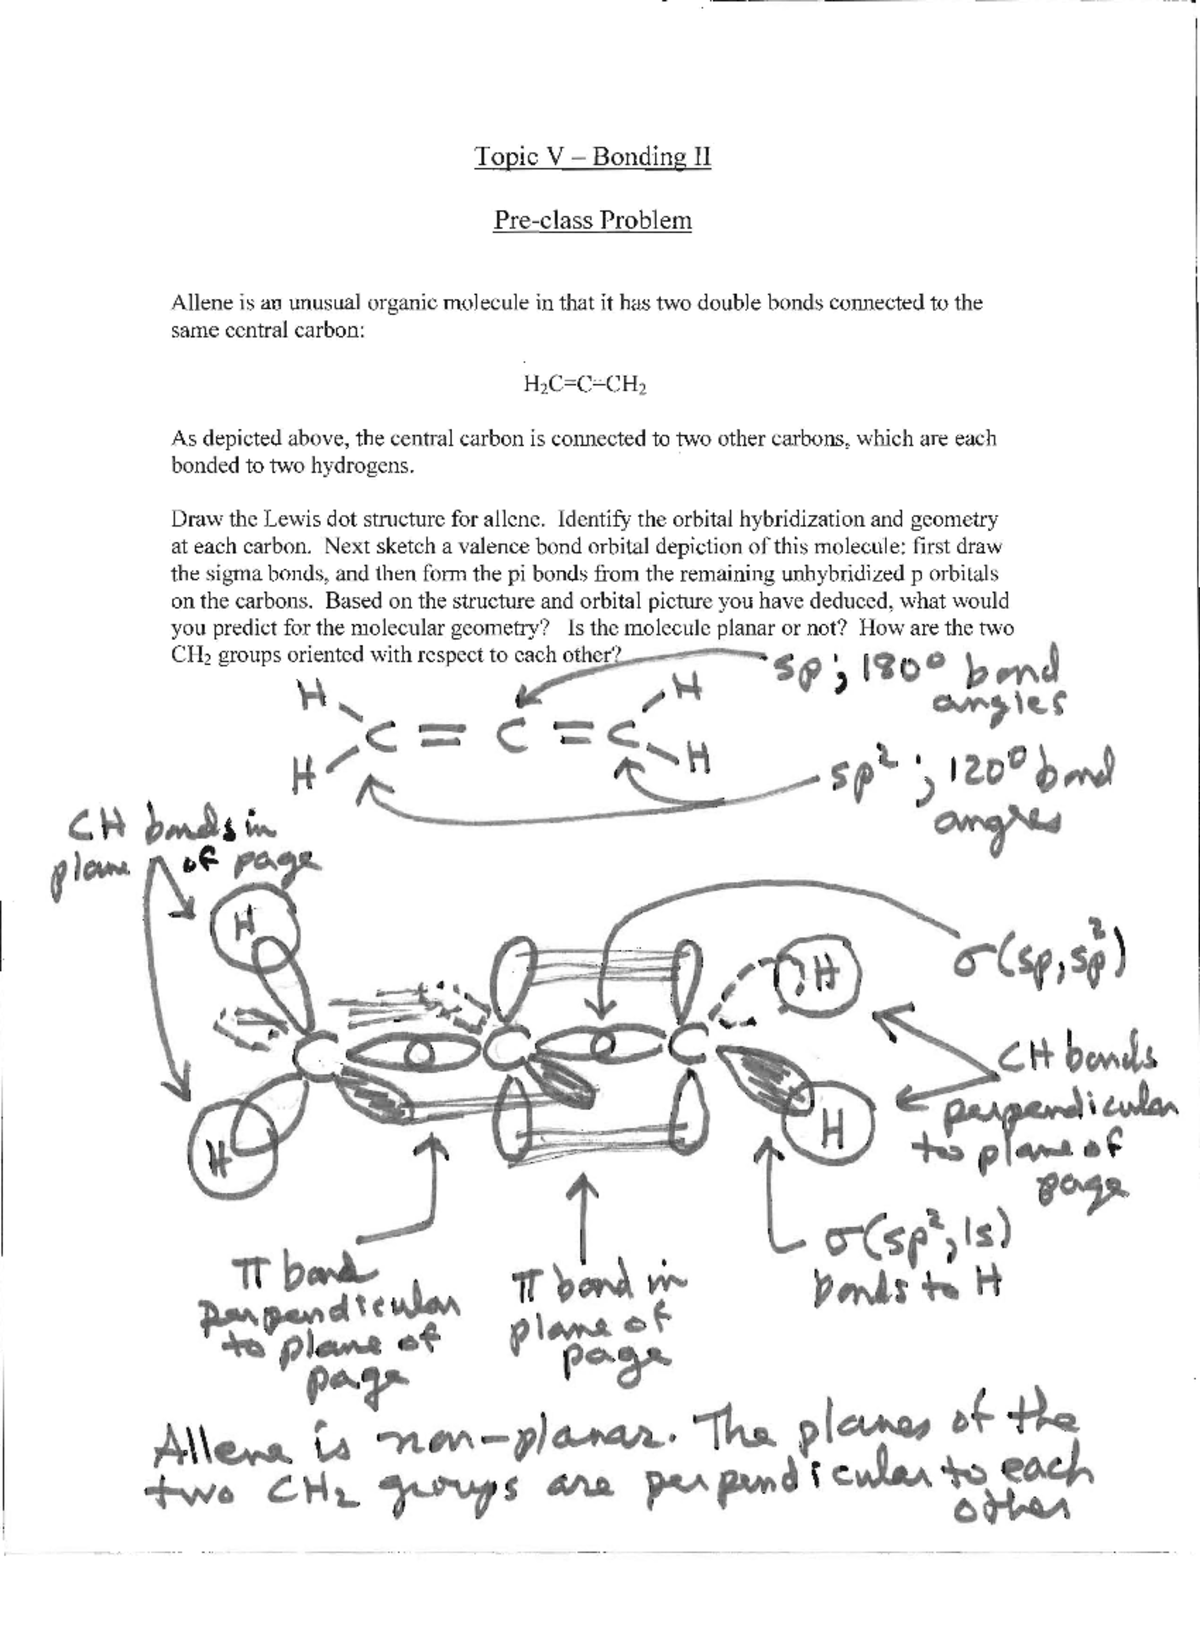 Topic V – Bonding II
Pre-class Problem
Allene is an unusual organic molecule in that it has two double bonds connected to the
same central carbon:
H₂C=C=CH₂
As depicted above, the central carbon is connected to two other carbons, which are each
bonded to two hydrogens.
Draw the Lewis dot structure for allene. Identify the orbital hybridization and geometry
at each carbon. Next sketch a valence bond orbital depiction of this molecule: first draw
the sigma bonds, and then form the pi bonds from the remaining unhybridized p orbitals
on the carbons. Based on the structure and orbital picture you have deduced, what would
you predict for the molecular geometry? Is the molecule planar or not? How are the two
CH₂ groups oriented with respect to each other?
sp; 180° bond
angles
H H
C = C = C
H H
sp²; 120° bond
angles
CH bonds in
plane of page
H
H
σ(sp, sp²)
C C C
CH bonds
perpendicular
to plane of
page
H
H
σ(sp², 1s)
bonds to H
π bond
perpendicular
to plane of
page
π bond in
plane of
page
Allene is non-planar. The planes of the
two CH₂ groups are perpendicular to each
other